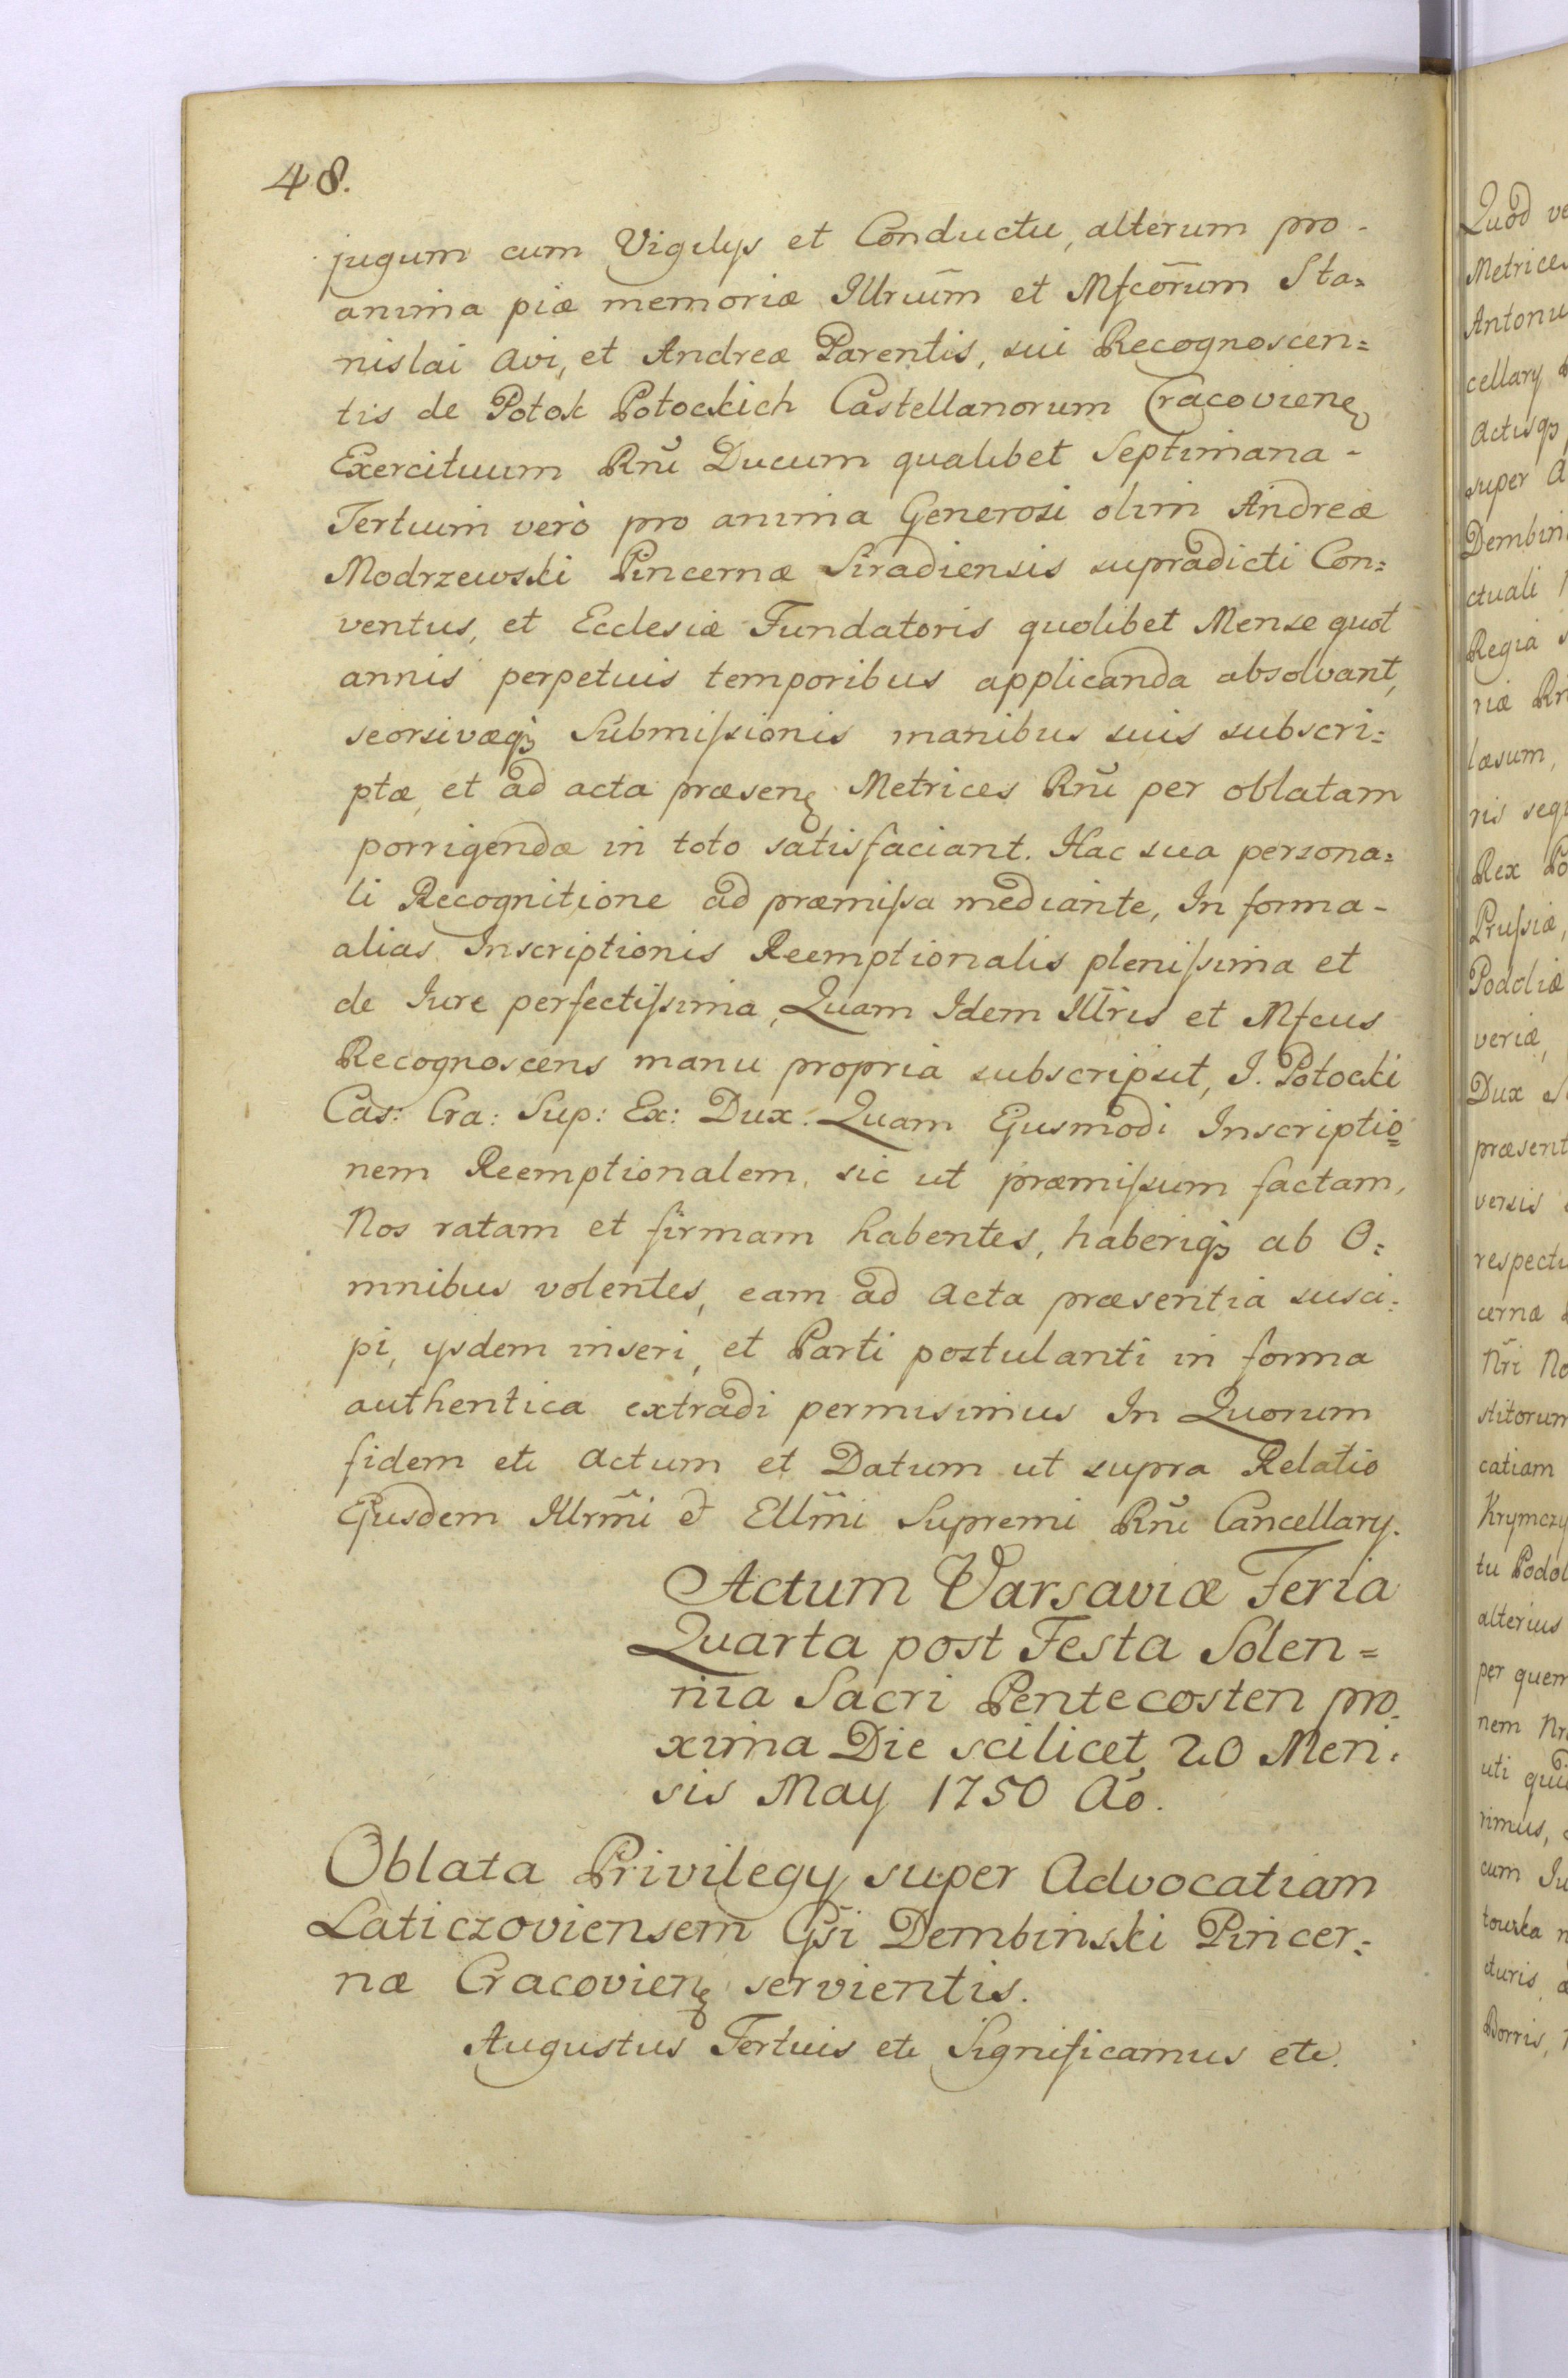 48.
jugum cum Vigilys et Conductu, alterum pro-
anima piæ memoriæ Illrium̄ et Mfcōrum Sta=
nislai avi, et Andreæ Parentis, sui Recognoscen=
tis de Potok Potockich Castellanorum Cracovienȩ
Exercituum Rnĩ Ducum qualibet Septimana-
Tertium verò pro anima Generosi olim Andreæ
Modrzewski Pincernæ Siradiensis supradicti Con=
ventus, et Ecclesiæ Fundatoris quolibet Mense quot
annis perpetuis temporibus applicanda absolvant,
seorsivæqꝫ Submiſsionis manibus suis subscri=
ptæ, et ad acta præsenȩ Metrices Rnĩ per oblatam
porrigendæ in toto satisfaciant. Hac sua persona=
li Recognitione ad præmiſsa mediante, In forma-
alias Inscriptionis Reemptionalis pleniſsima et
de Iure perfectiſsima, Quam Idem Illr̃is et Mfcus
Recognoscens manu propria subscripsit, J. Potocki
Cas: Cra: Sup: Ex: Dux. Quam Ejusmodi Inscriptio=
nem Reemptionalem, sic ut præmiſsum factam,
Nos ratam et firmam habentes, haberiqꝫ ab O=
mnibus volentes, eam ad acta præsentia susci=
pi, ysdem inseri, et Parti postulanti in forma
authentica extradi permisimus In Quorum
fidem etc actum et Datum ut supra Relatio
Ejusdem Illrm̃i et Ellm̃i Supremi Rnĩ Cancellary.
Actum Varsaviæ Feria
Quarta post Festa Solen=
nia Sacri Pentecosten pro-
xima Die scilicet 20 Men=
sis May 1750 Aō.
Oblata Privilegy super Advocatiam
Laticzoviensem Gsĩ Dembinski Pincer=
næ Cracovienȩ servientis.
Augustus Tertius etc Significamus etc.
Quod
Metrices
cellary
actisqꝫ
super
ctuali
Regia
læsum,
Rex
Pruſsiæ,
Podoliæ
veriæ,
Dux
versis
cernæ
Nr̃i
catiam
alterius
per quem
nem
uti
rimus,
cum